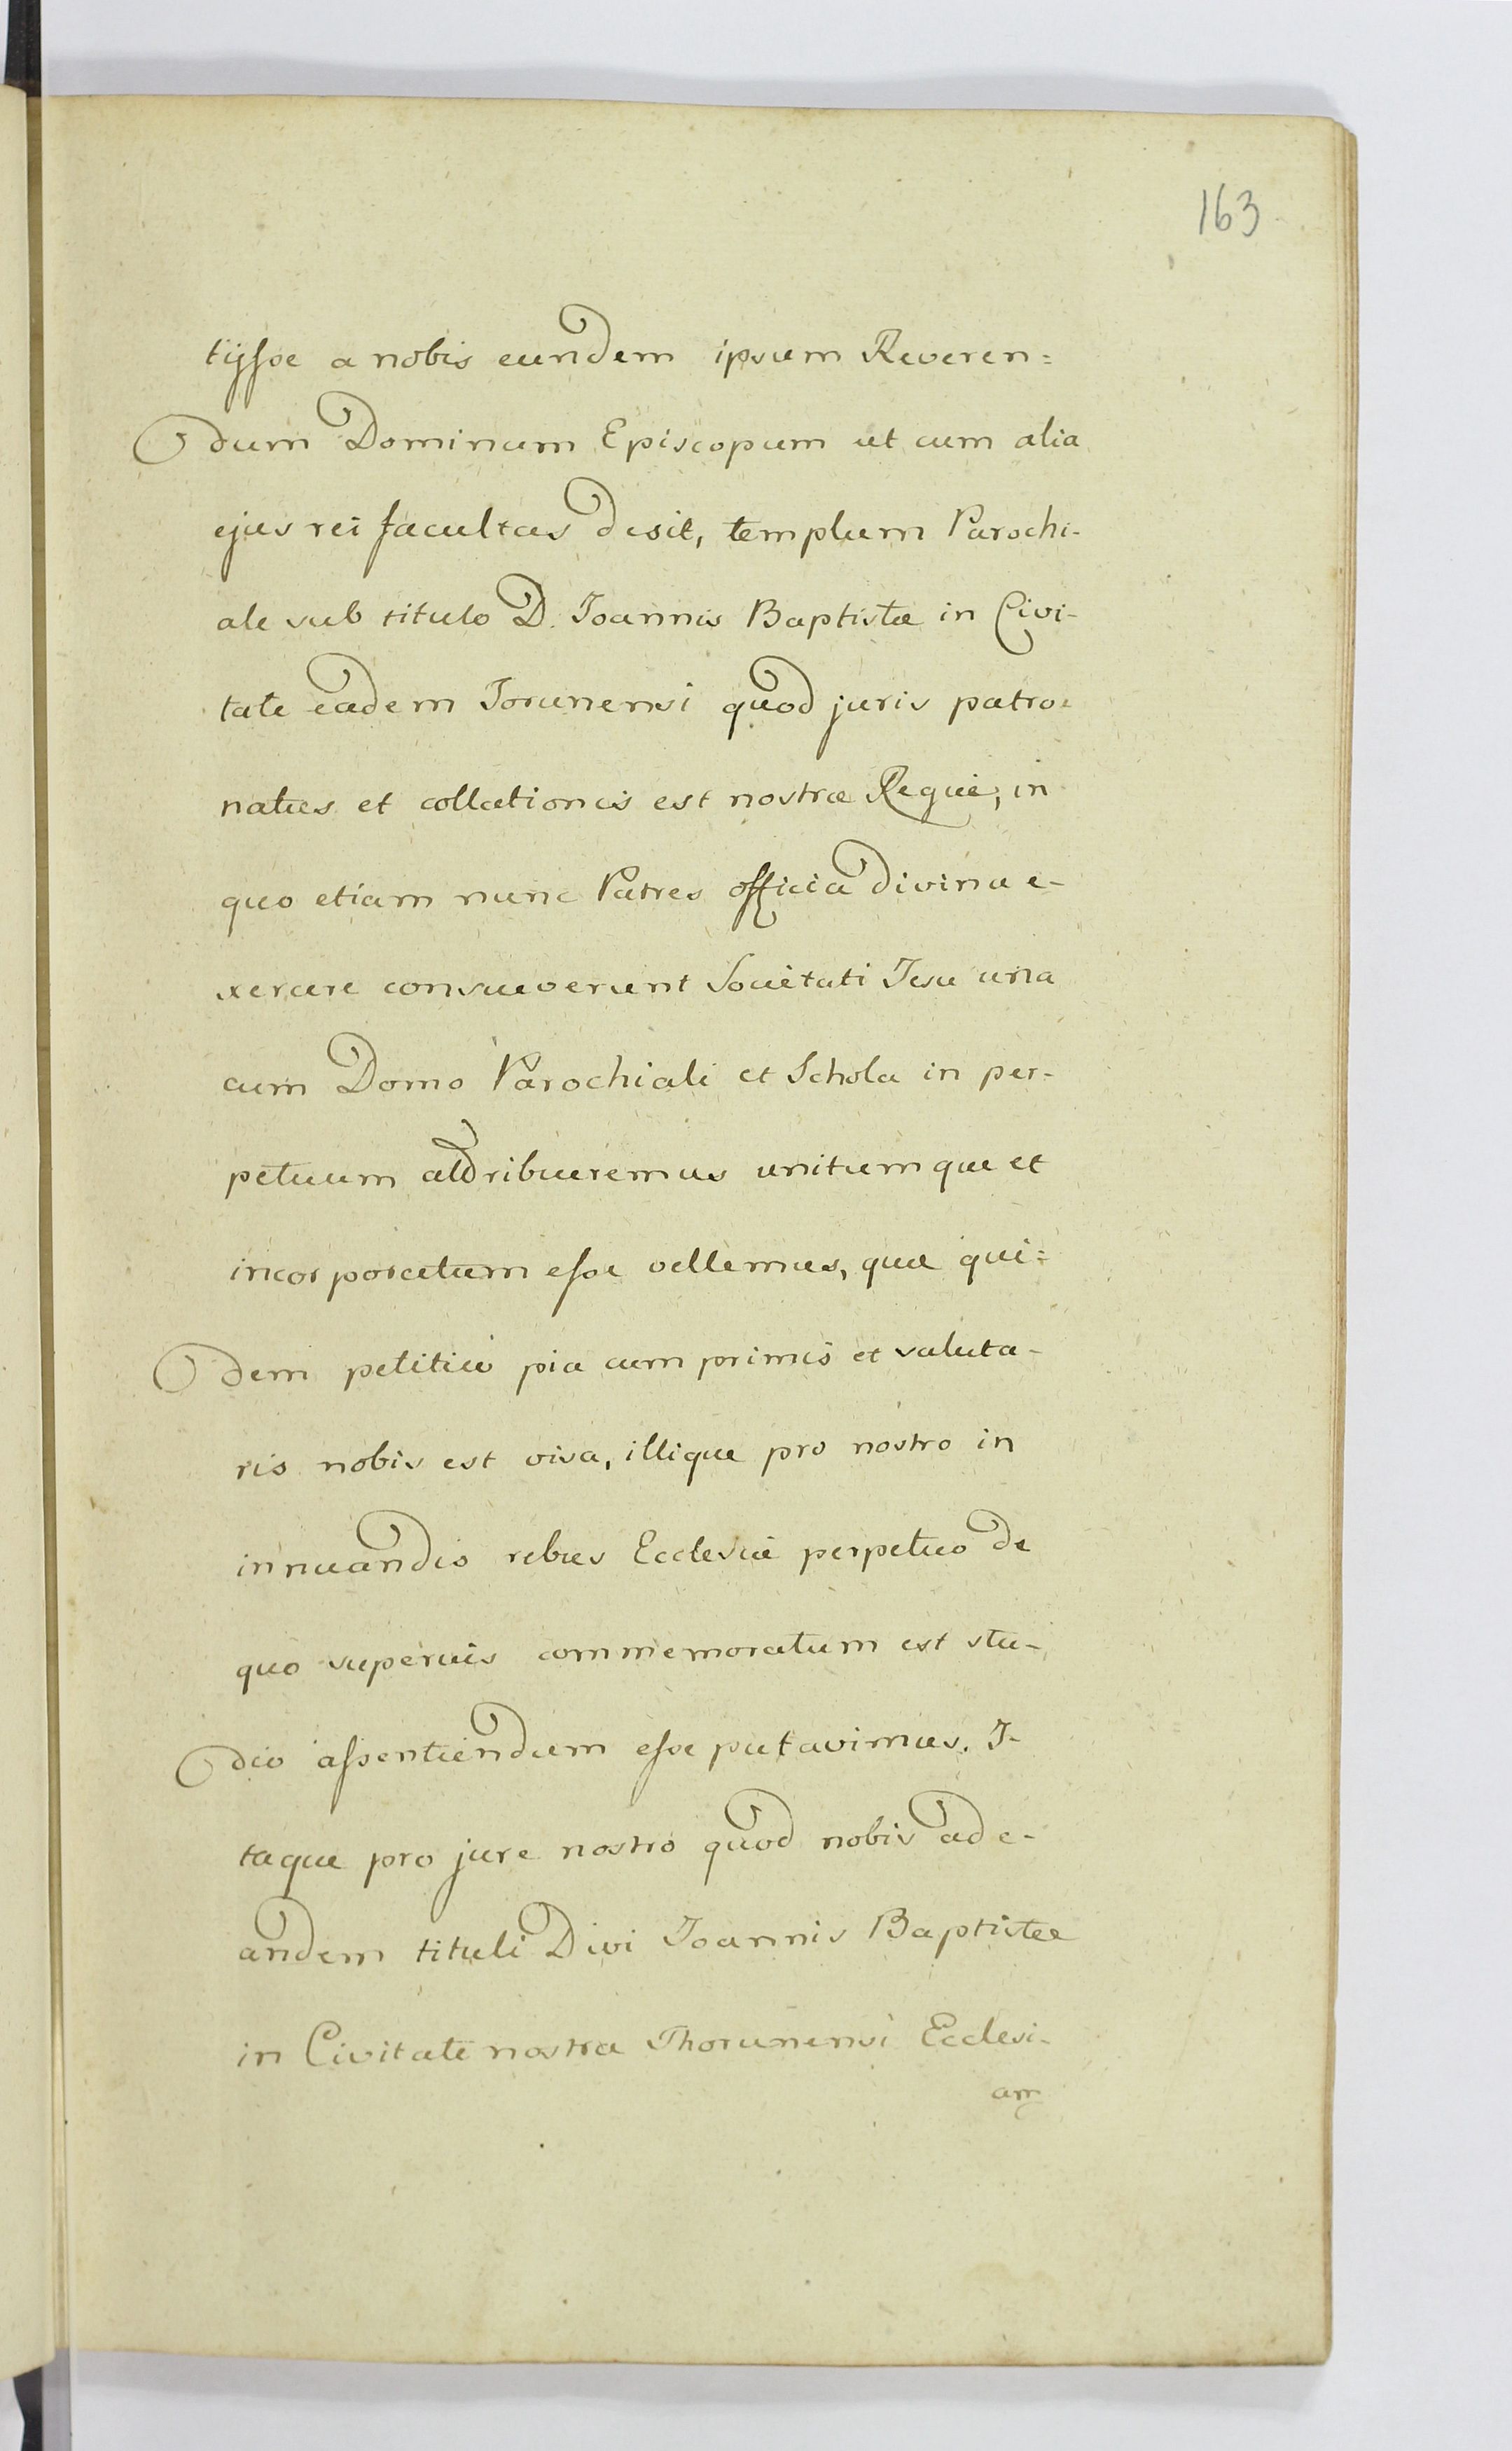 163
tijsse a nobis eundem ipsum Reveren=
dum Dominum Episcopum ut cum alia
ejus rei facultas desit, templum Parochi-
ale sub titulo D. Joannis Baptistæ in Civi-
tate eadem Torunensi quod juris patro=
natus et collationis est nostræ Regiæ, in
quo etiam nunc Patres officia divina e-
xercere consueverunt Societati Jesu una
cum Domo Parochiali et Schola in per-
petuum addribueremus unitumque et
incorporatum esse vellemus, quæ qui=
dem petitio pia cum primis et saluta-
ris nobis est visa, illique pro nostro in
innuandis rebus Ecclesiæ perpetuo de
quo superius commemoratum est stu-
dio assentiendum esse putavimus. I-
taque pro jure nostro quod nobis ad e-
andem tituli Divi Joannis Baptistæ
in Civitate nostra Thorunensi Ecclesi-
am